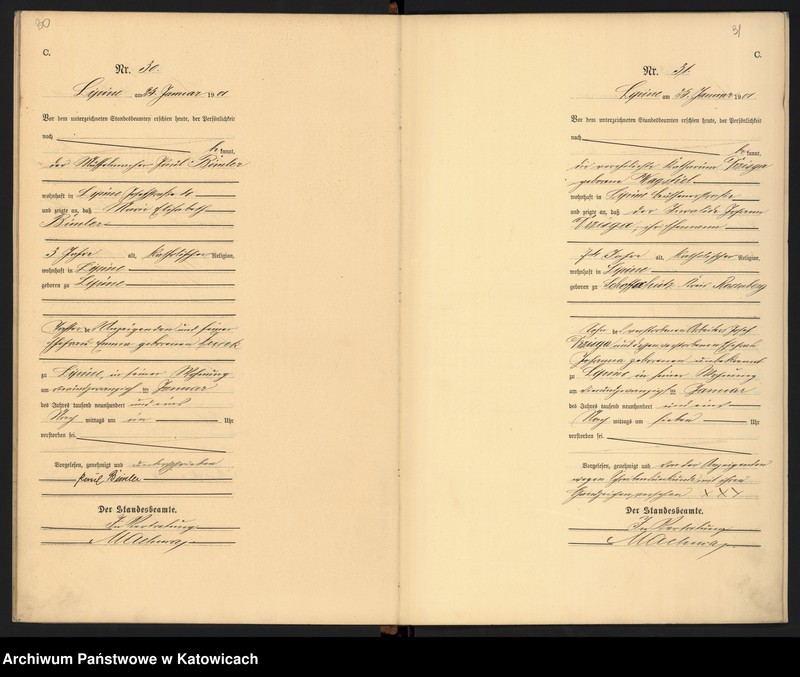 30
C.
Nr. 30.
Lipine am 24. Januar 1901
Vor dem unterzeichneten Standesbeamten erschien heute, der Persönlichkeit
nach
be kannt,
der Paul Bimler
wohnhaft in Lipine
und zeigte an, daß Marie Elisabeth
Bimler
3 Jahre alt, katholischer Religion,
wohnhaft in Lipine
geboren zu Lipine
Tochter des Anzeigenden und seiner
Ehefrau Emma geborenen
zu Lipine, in seiner Wohnung
am ten Januar
des Jahres tausend neunhundert und eins
Nach mittags um ein Uhr
verstorben sei.
Vorgelesen, genehmigt und unterschrieben
Paul Bimler
Der Standesbeamte.
In Vertretung
31
C.
Nr. 31.
Lipine am 24. Januar 1901
Vor dem unterzeichneten Standesbeamten erschien heute, der Persönlichkeit
nach
be kannt,
die verehelichte Katharina
geborene
wohnhaft in Lipine
und zeigte an, daß der Invalide Johann
ihr Ehemann
74 Jahre alt, katholischer Religion,
wohnhaft in Lipine
geboren zu Kreis Rosenberg
Sohn des verstorbenen Arbeiters Josef
und dessen verstorbenen Ehefrau
Johanna geborenen unbekannt
zu Lipine in seiner Wohnung
am ten Januar
des Jahres tausend neunhundert und eins
Nach mittags um sieben Uhr
verstorben sei.
Vorgelesen, genehmigt und von der Anzeigenden
wegen Schreibensunkunde mit ihren
Handzeichen versehen XXX
Der Standesbeamte.
In Vertretung
Archiwum Państwowe w Katowicach